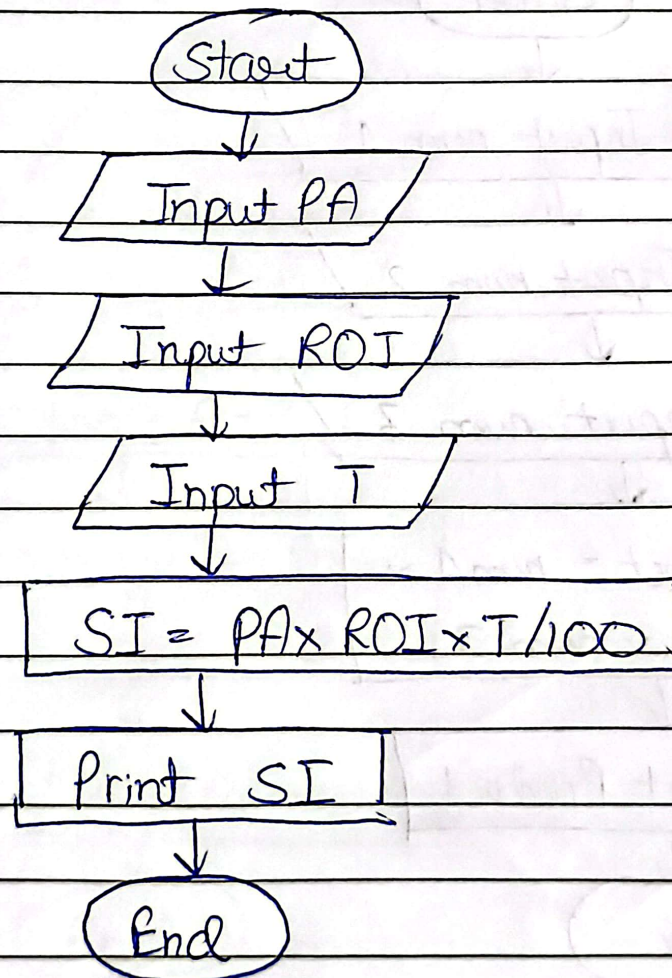 Start
Input PA
Input ROI
Input T
SI = PA x ROI x T/100
Print SI
End